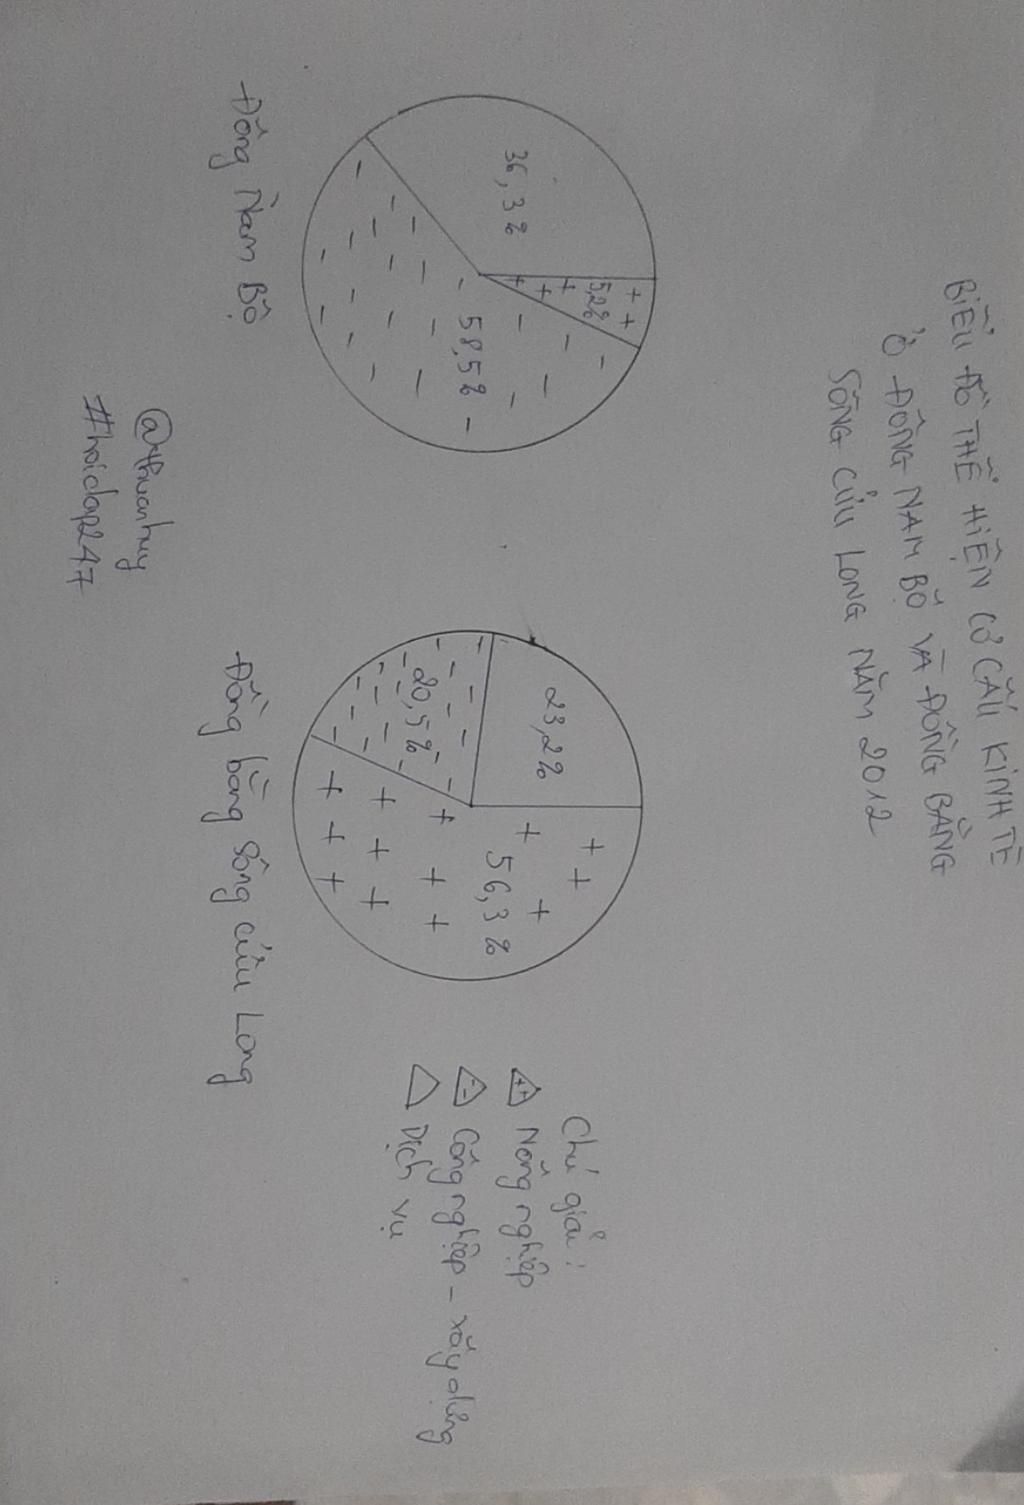 BIỂU ĐỒ THỂ HIỆN CƠ CẤU KINH TẾ
Ở ĐÔNG NAM BỘ VÀ ĐỒNG BẰNG
SÔNG CỬU LONG NĂM 2012
36,3%
5,2%
58,5%
Đông Nam Bộ
23,2%
20,5%
56,3%
Đồng bằng sông cửu Long
Chú giải:
Nông nghiệp
Công nghiệp - xây dựng
Dịch vụ
@thuanhuy
#hoidap247